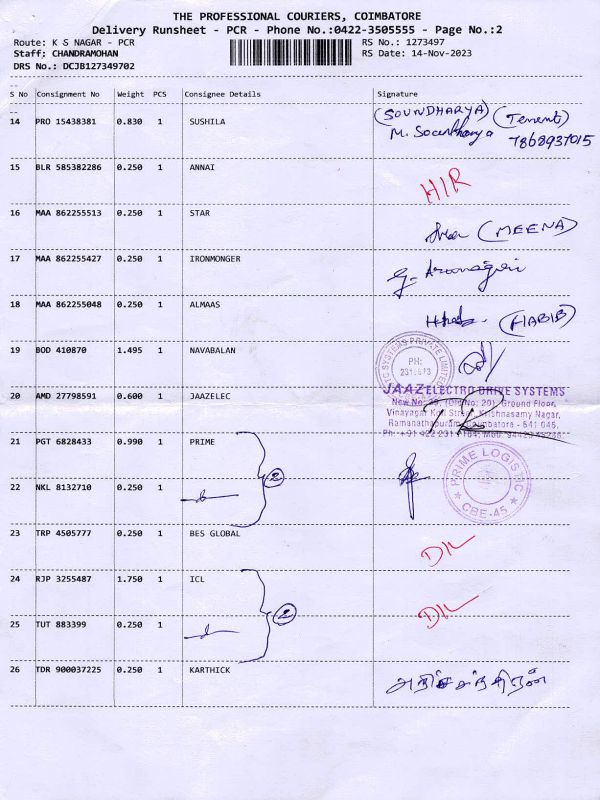 THE PROFESSIONAL COURIERS, COIMBATORE
Delivery Runsheet - PCR - Phone No.:0422-3505555 - Page No.:2
Route: K S NAGAR - PCR RS No.: 1273497
Staff; CHANDRAMOHAN RS Date: 14-Nov-2023
DRS No.: DCJB127349702
S No Consignment No Weight PCS Consignee Details Signature
14 PRO 15438381 0.830 1 SUSHILA (SOUNDHARYA) (Tenent)
7868937015
15 BLR 585382286 0.250 1 ANNAI HIR
16 MAA 862255513 0.250 1 STAR (MEENA)
17 MAA 862255427 0.250 1 IRONMONGER
18 MAA 862255048 0.250 1 ALMAAS (HABIB)
19 BOD 410870 1.495 1 NAVABALAN
SYSTEMS PRIVATE LIMITED
PH:
20 AMD 27798591 0.600 1 JAAZELEC JAAZ ELECTRO DRIVE SYSTEMS
Ground Floor,
Vinayagar Street, Krishnasamy Nagar,
Ramanathapuram, Coimbatore - 641 045.
21 PGT 6828433 0.990 1 PRIME
2
PRIME LOGISTIC
CBE-45
22 NKL 8132710 0.250 1
23 TRP 4505777 0.250 1 BES GLOBAL DIL
24 RJP 3255487 1.750 1 ICL DIL
2
25 TUT 883399 0.250 1
26 TDR 900037225 0.250 1 KARTHICK